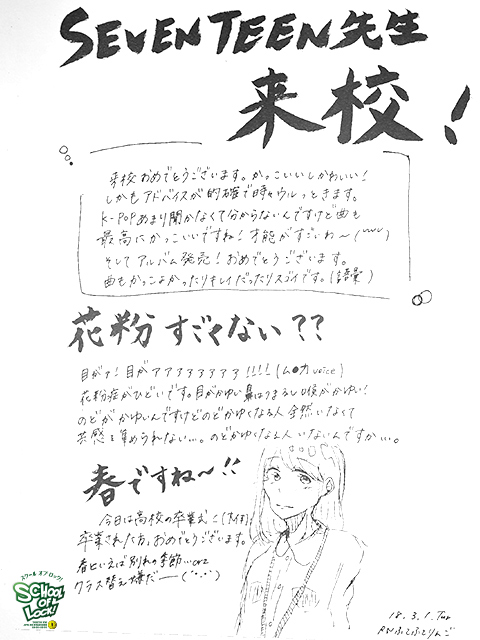 SEVENTEEN先生
来校!
来校おめでとうございます。かっこいいしかわいい!
しかもアドバイスが的確で時々ウルっときます。
K-POPあまり聞かなくて分からないんですけど曲も
最高にかっこいいですね!才能がすごいわ〜
そしてアルバム発売!おめでとうございます。
曲もかっこよかったりキレイだったりスゴイです。(語彙)
花粉すごくない??
目がァ!目がァァァァァァァ!!!!(ム●カvoice)
花粉症がひどいです。目がかゆい鼻はつまるし喉がかゆい!
のどがかゆいんですけどのどかゆくなる人全然いなくて
共感を集められない…。のどかゆくなる人いないんですか…。
春ですね〜!!
今日は高校の卒業式
卒業された方、おめでとうございます。
春といえば別れの季節…orz
クラス替え嫌だー
スクール オブ ロック!
SCHOOL OF LOCK!
18.3.1.Tur
RNふてふてりんご